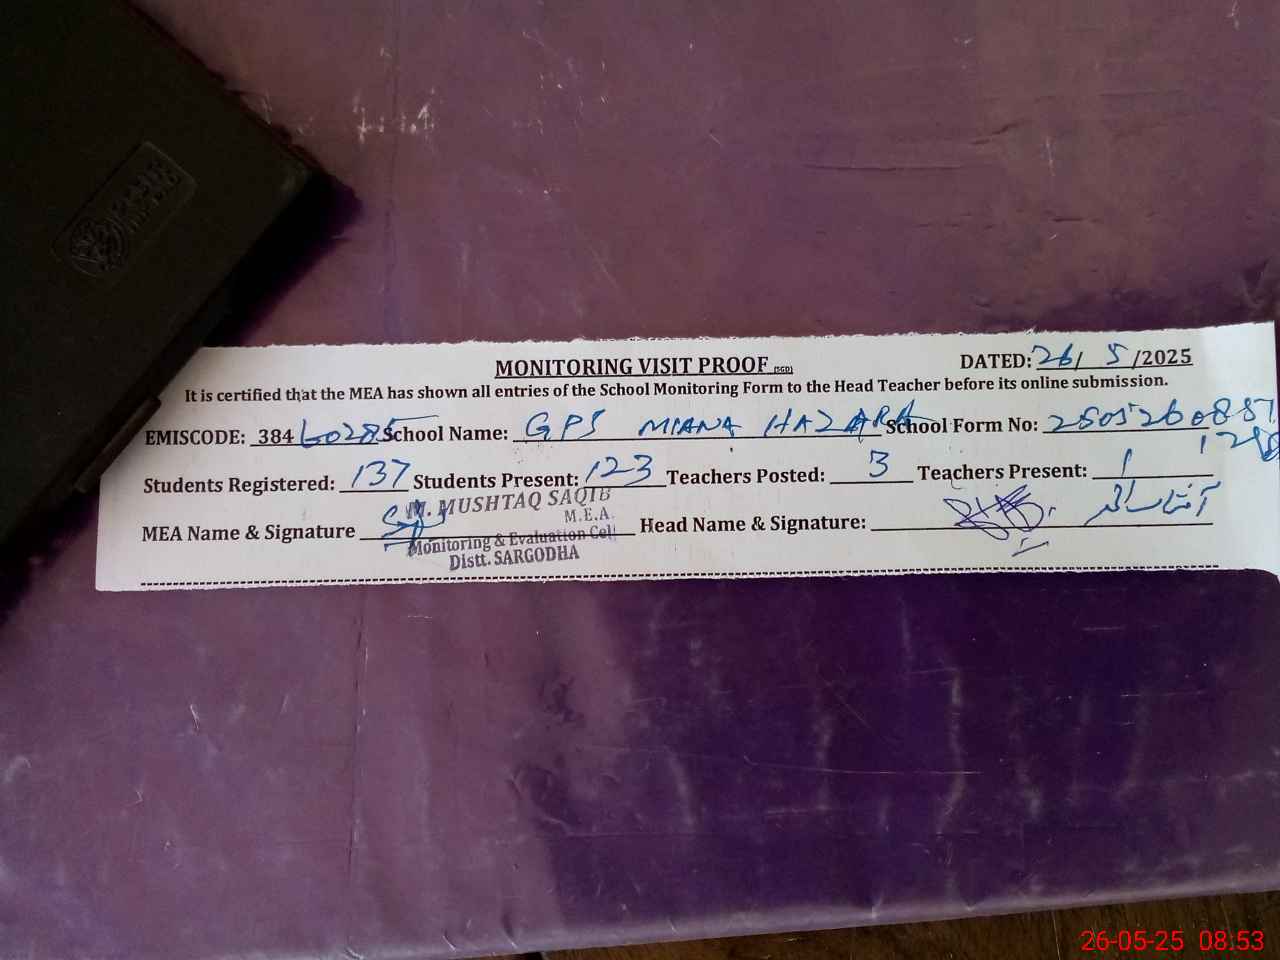 MONITORING VISIT PROOF (SGD)
DATED: 26/ 5 /2025
It is certified that the MEA has shown all entries of the School Monitoring Form to the Head Teacher before its online submission.
EMISCODE: 38460285 School Name: GPS MIANA HAZARA School Form No: 2505260851
Students Registered: 137 Students Present: 123 Teachers Posted: 3 Teachers Present: 1
M. MUSHTAQ SAQIB
M.E.A.
MEA Name & Signature Head Name & Signature:
Monitoring & Evaluation Cell
Distt. SARGODHA
26-05-25 08:53